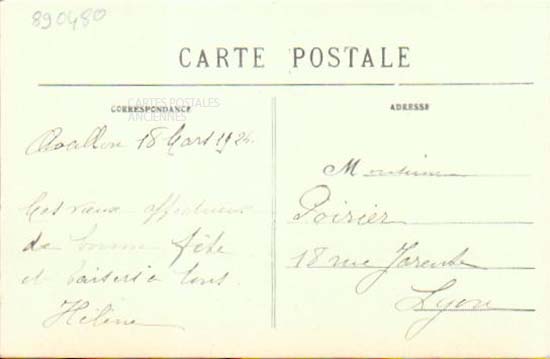 890480
CARTE POSTALE
CORRESPONDANCE
CARTES POSTALES
ANCIENNES
ADRESSE
Avallon 18 Mars 1924.
Monsieur
Mes vœux affectueux
Poirier
de bonne fête
18 rue Jarente
et baisers à tous
Lyon
Hélène